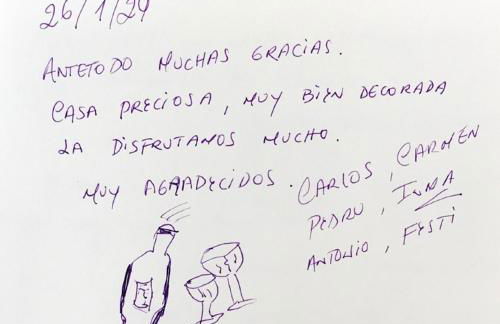 26/1/24
ANTETODO MUCHAS GRACIAS.
CASA PRECIOSA, MUY BIEN DECORADA
LA DISFRUTAMOS MUCHO.
MUY AGRADECIDOS. CARLOS, CARMEN
PEDRO, INMA
ANTONIO, FESTI